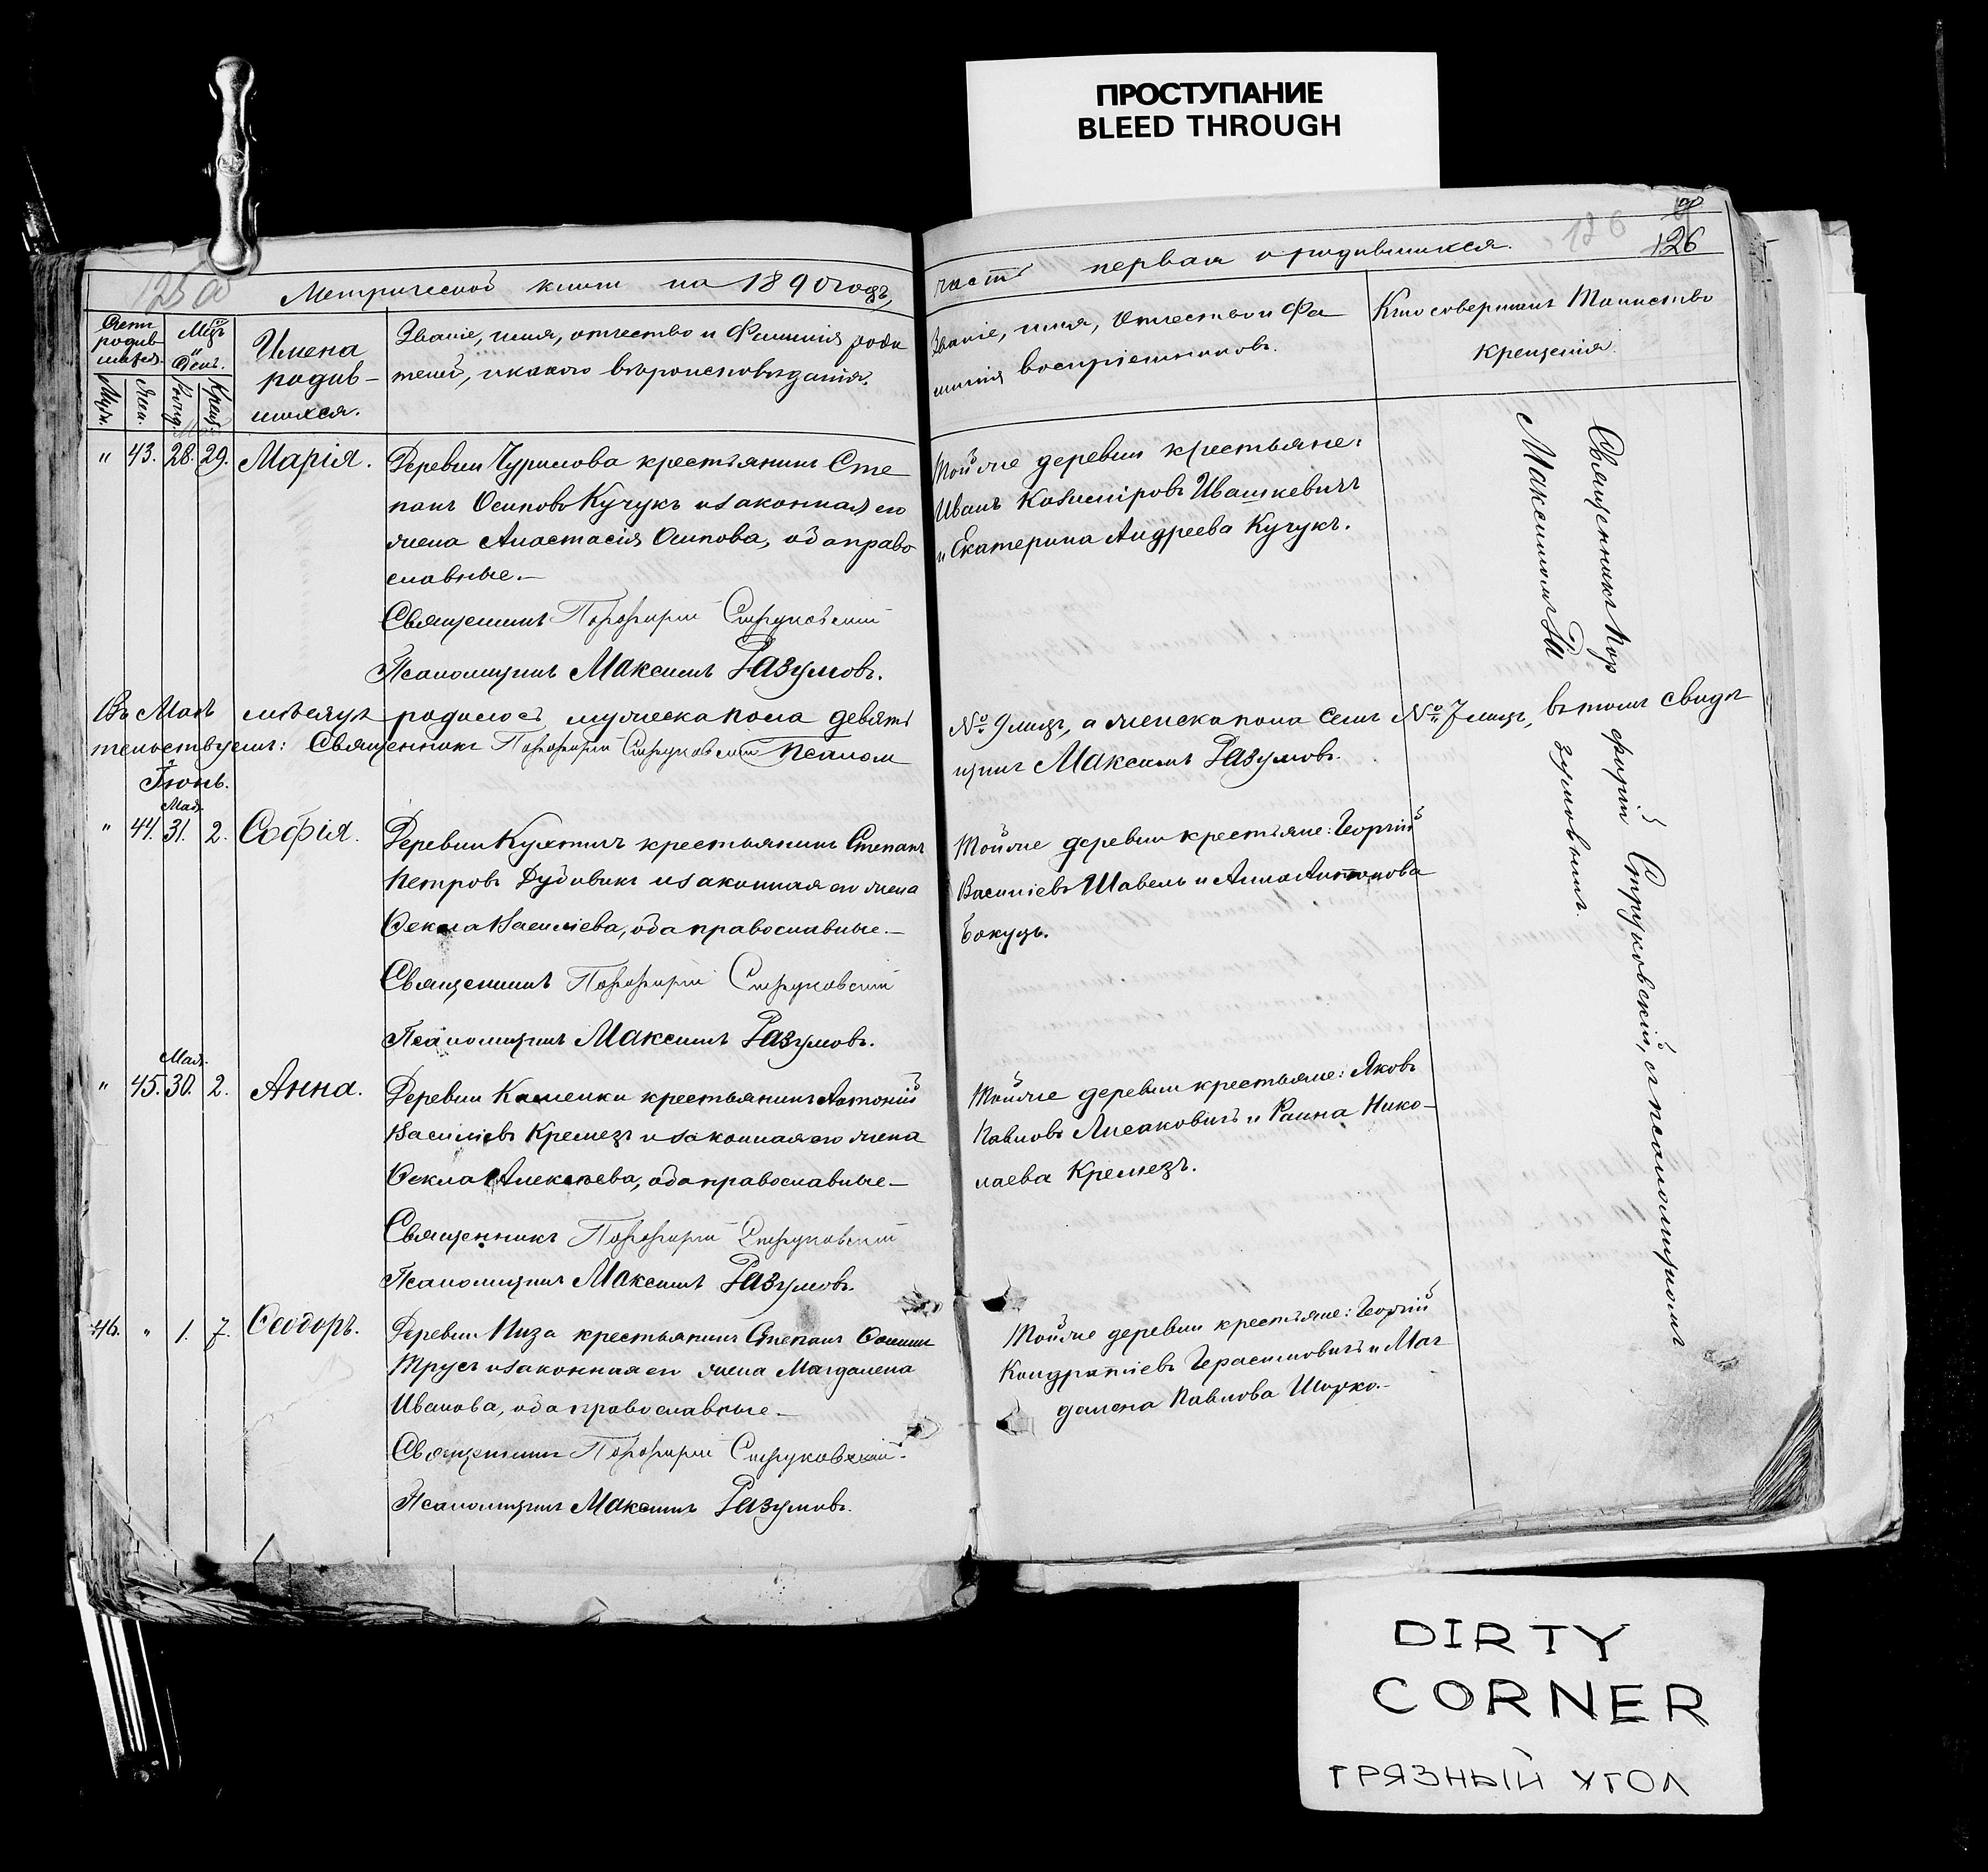 ПРОСТУПАНИЕ
BLEED THROUGH
126
126
Метрической книги на 1890 годъ,
часть первая о родившихся.
Счетъ родив-шихся.
Муж.
Жен.
Мѣсцъ и День.
Рожд.
Крещ.
Имена
родив-
шихся.
Званіе, имя, отчество и Фамилія роди
телей, и какого вѣроисповѣданія.
Званіе, имя, Отчество и Фа
милія воспріемниковъ.
Кто совершалъ Таинство
Крещенія.
" 43. 28. 29. Марія.
Деревни Чурилова крестьянинъ Сте
панъ Осиповъ Кучукъ и законная его
жена Анастасія Осипова, оба право
славные.—
Священникъ Порфирій Струковскій
Псаломщикъ Максимъ Разумовъ.
Тойже деревни крестьяне:
Иванъ Казиміровъ Ивашкевичъ
и Екатерина Андреева Кучукъ.
Въ Маѣ мѣсяцѣ родилось мужеска пола девять № 9 лицъ, а женска пола семь № 7 лицъ, въ томъ свидѣ
тельствуемъ: Священникъ Порфирій Струковскій Псалом
щикъ Максимъ Разумовъ.
Іюнь.
Мая.
" 44. 31. 2. Софія.
Деревни Кухтичъ крестьянинъ Степанъ
Петровъ Дубовикъ и законная его жена
Ѳекла Васильева, оба православные.—
Священникъ Порфирій Струковскій
Псаломщикъ Максимъ Разумовъ.
Тойже деревни крестьяне: Георгій
Василіевъ Шавель и Анна Антонова
Бокуць.
Мая.
" 45. 30. 2. Анна.
Деревни Каменки крестьянинъ Антоній
Василіевъ Кремезъ и законная его жена
Ѳекла Алексѣева, оба православные—
Священникъ Порфирій Струковскій
Псаломщикъ Максимъ Разумовъ.
Тойже деревни крестьяне: Яковъ
Павловъ Лисаковичъ и Раина Нико-
лаева Кремезъ.
46. " 1. 7. Ѳеодоръ.
Деревни Низа крестьянинъ Степанъ Осипов
Трусъ и законная его жена Магдалена
Иванова, оба православные—
Священникъ Порфирій Струковскій.
Псаломщикъ Максимъ Разумовъ.
Тойже деревни крестьяне: Георгій
Кондратіевъ Герасимовичъ и Маг
далена Павлова Шорко.—
Священникъ Порфирій Струковскій, съ псаломщикомъ
Максимомъ Разумовымъ.
DIRTY
CORNER
ГРЯЗНЫЙ УГОЛ